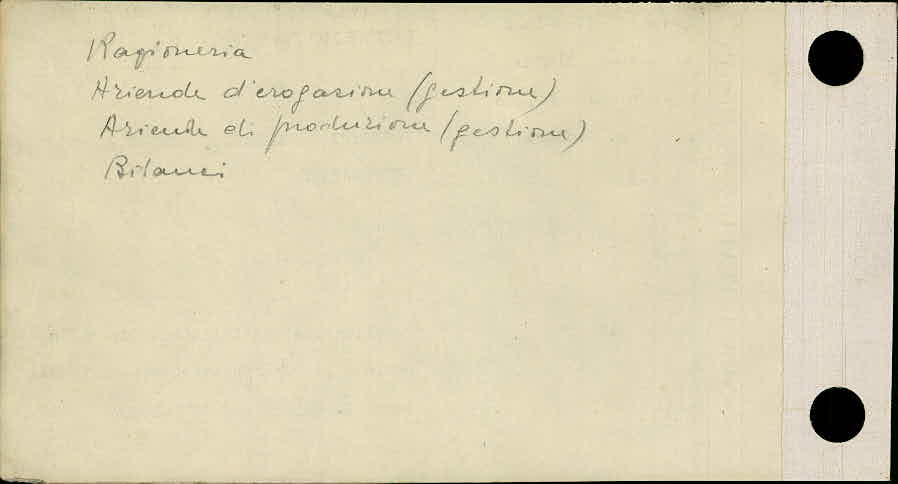 Ragioneria
Aziende d'erogazione (gestione)
Aziende di produzione (gestione)
Bilanci